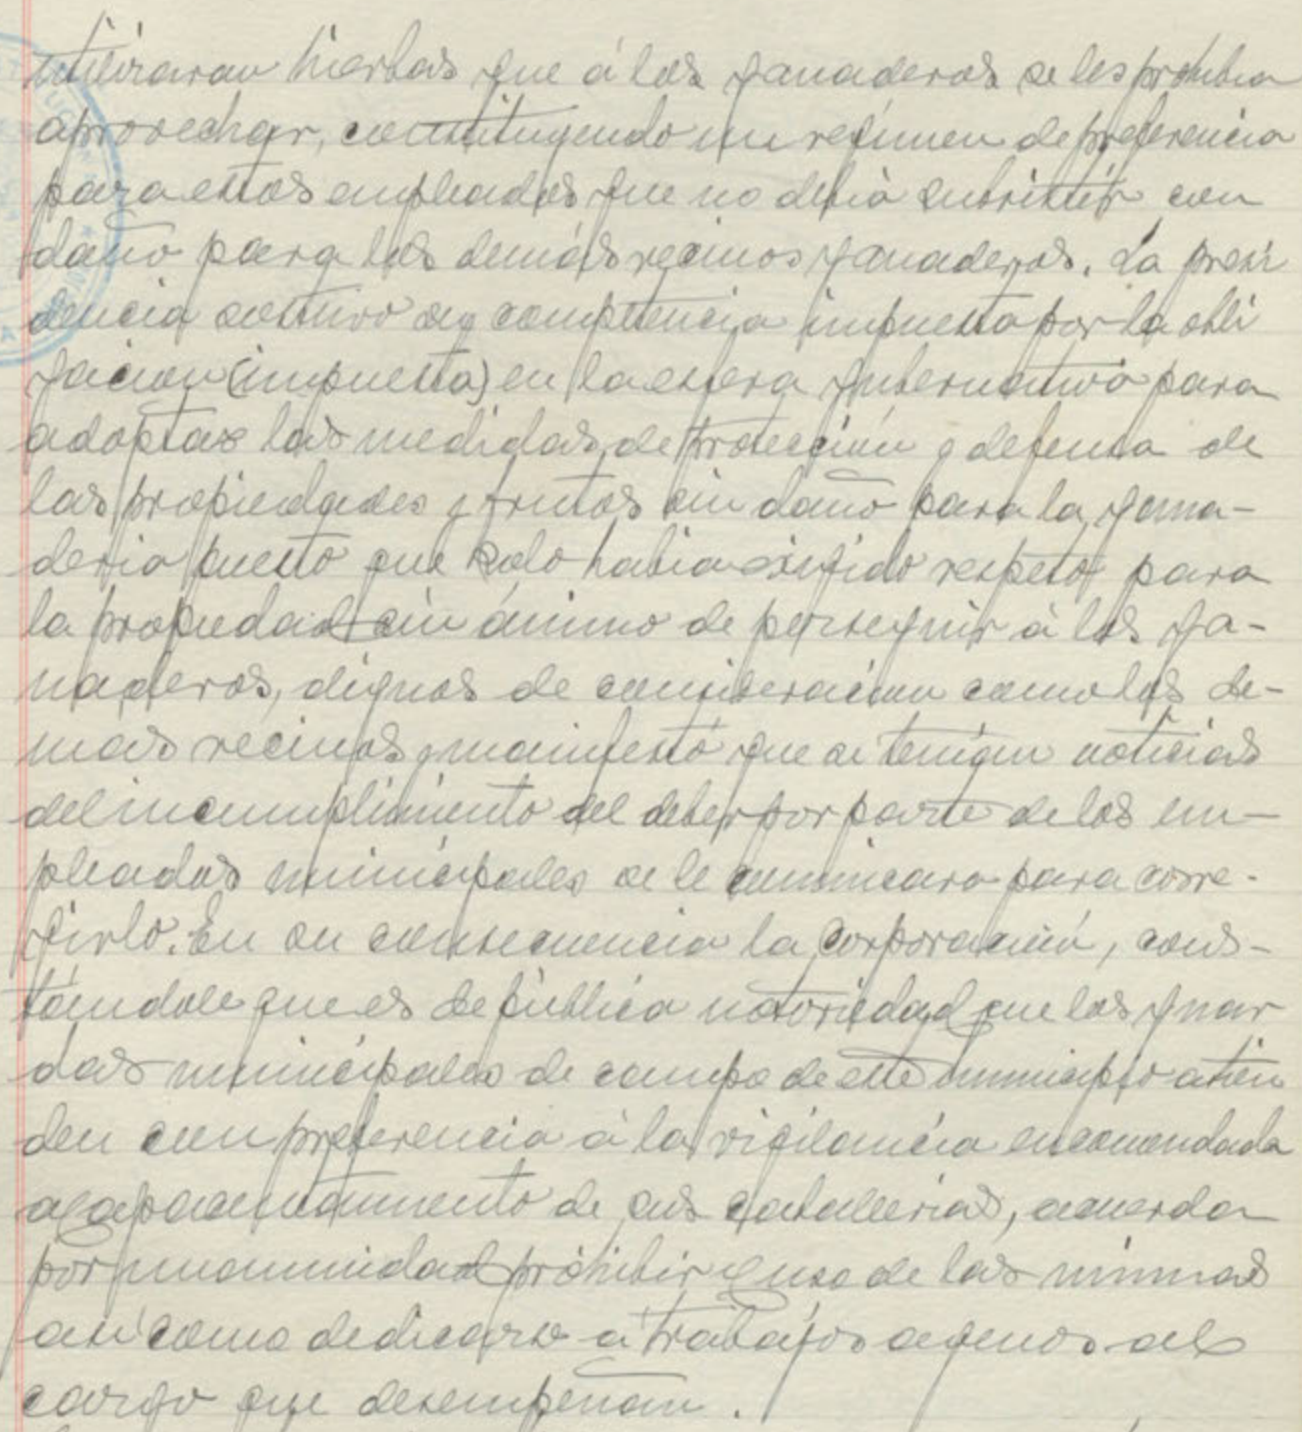 utilizaran hierbas que á los ganaderos se les prohibia
aprovechar, constituyendo un regimen de preferencia
para estos empleados que no debia subsistir con
daño para los demás vecinos ganaderos. La presi
dencia sostuvo su competencia impuesta por la obli
gacion (impuesta) en la esfera gubernativa para
adoptar las medidas de protección y defensa de
las propiedades y frutos sin daño para la gana-
deria puesto que solo habia exigido respeto para
la propiedad sin ánimo de perseguir á los ga-
naderos, dignos de consideracion como los de-
mas vecinos y manifestó que si tenian noticias
del incumplimiento del deber por parte de los em-
pleados municipales se le comunicara para corre-
girlo. En su consecuencia la Corporación, cons-
tándole que es de pública notoriedad que los guar
das municipales de campo de este municipio atien
den con preferencia á la vigilancia encomendada
al apacentamiento de sus caballerias, acuerda
por unanimidad prohibir el uso de las mismas
asi como dedicarse a trabajos agenos al
cargo que desempeñan.